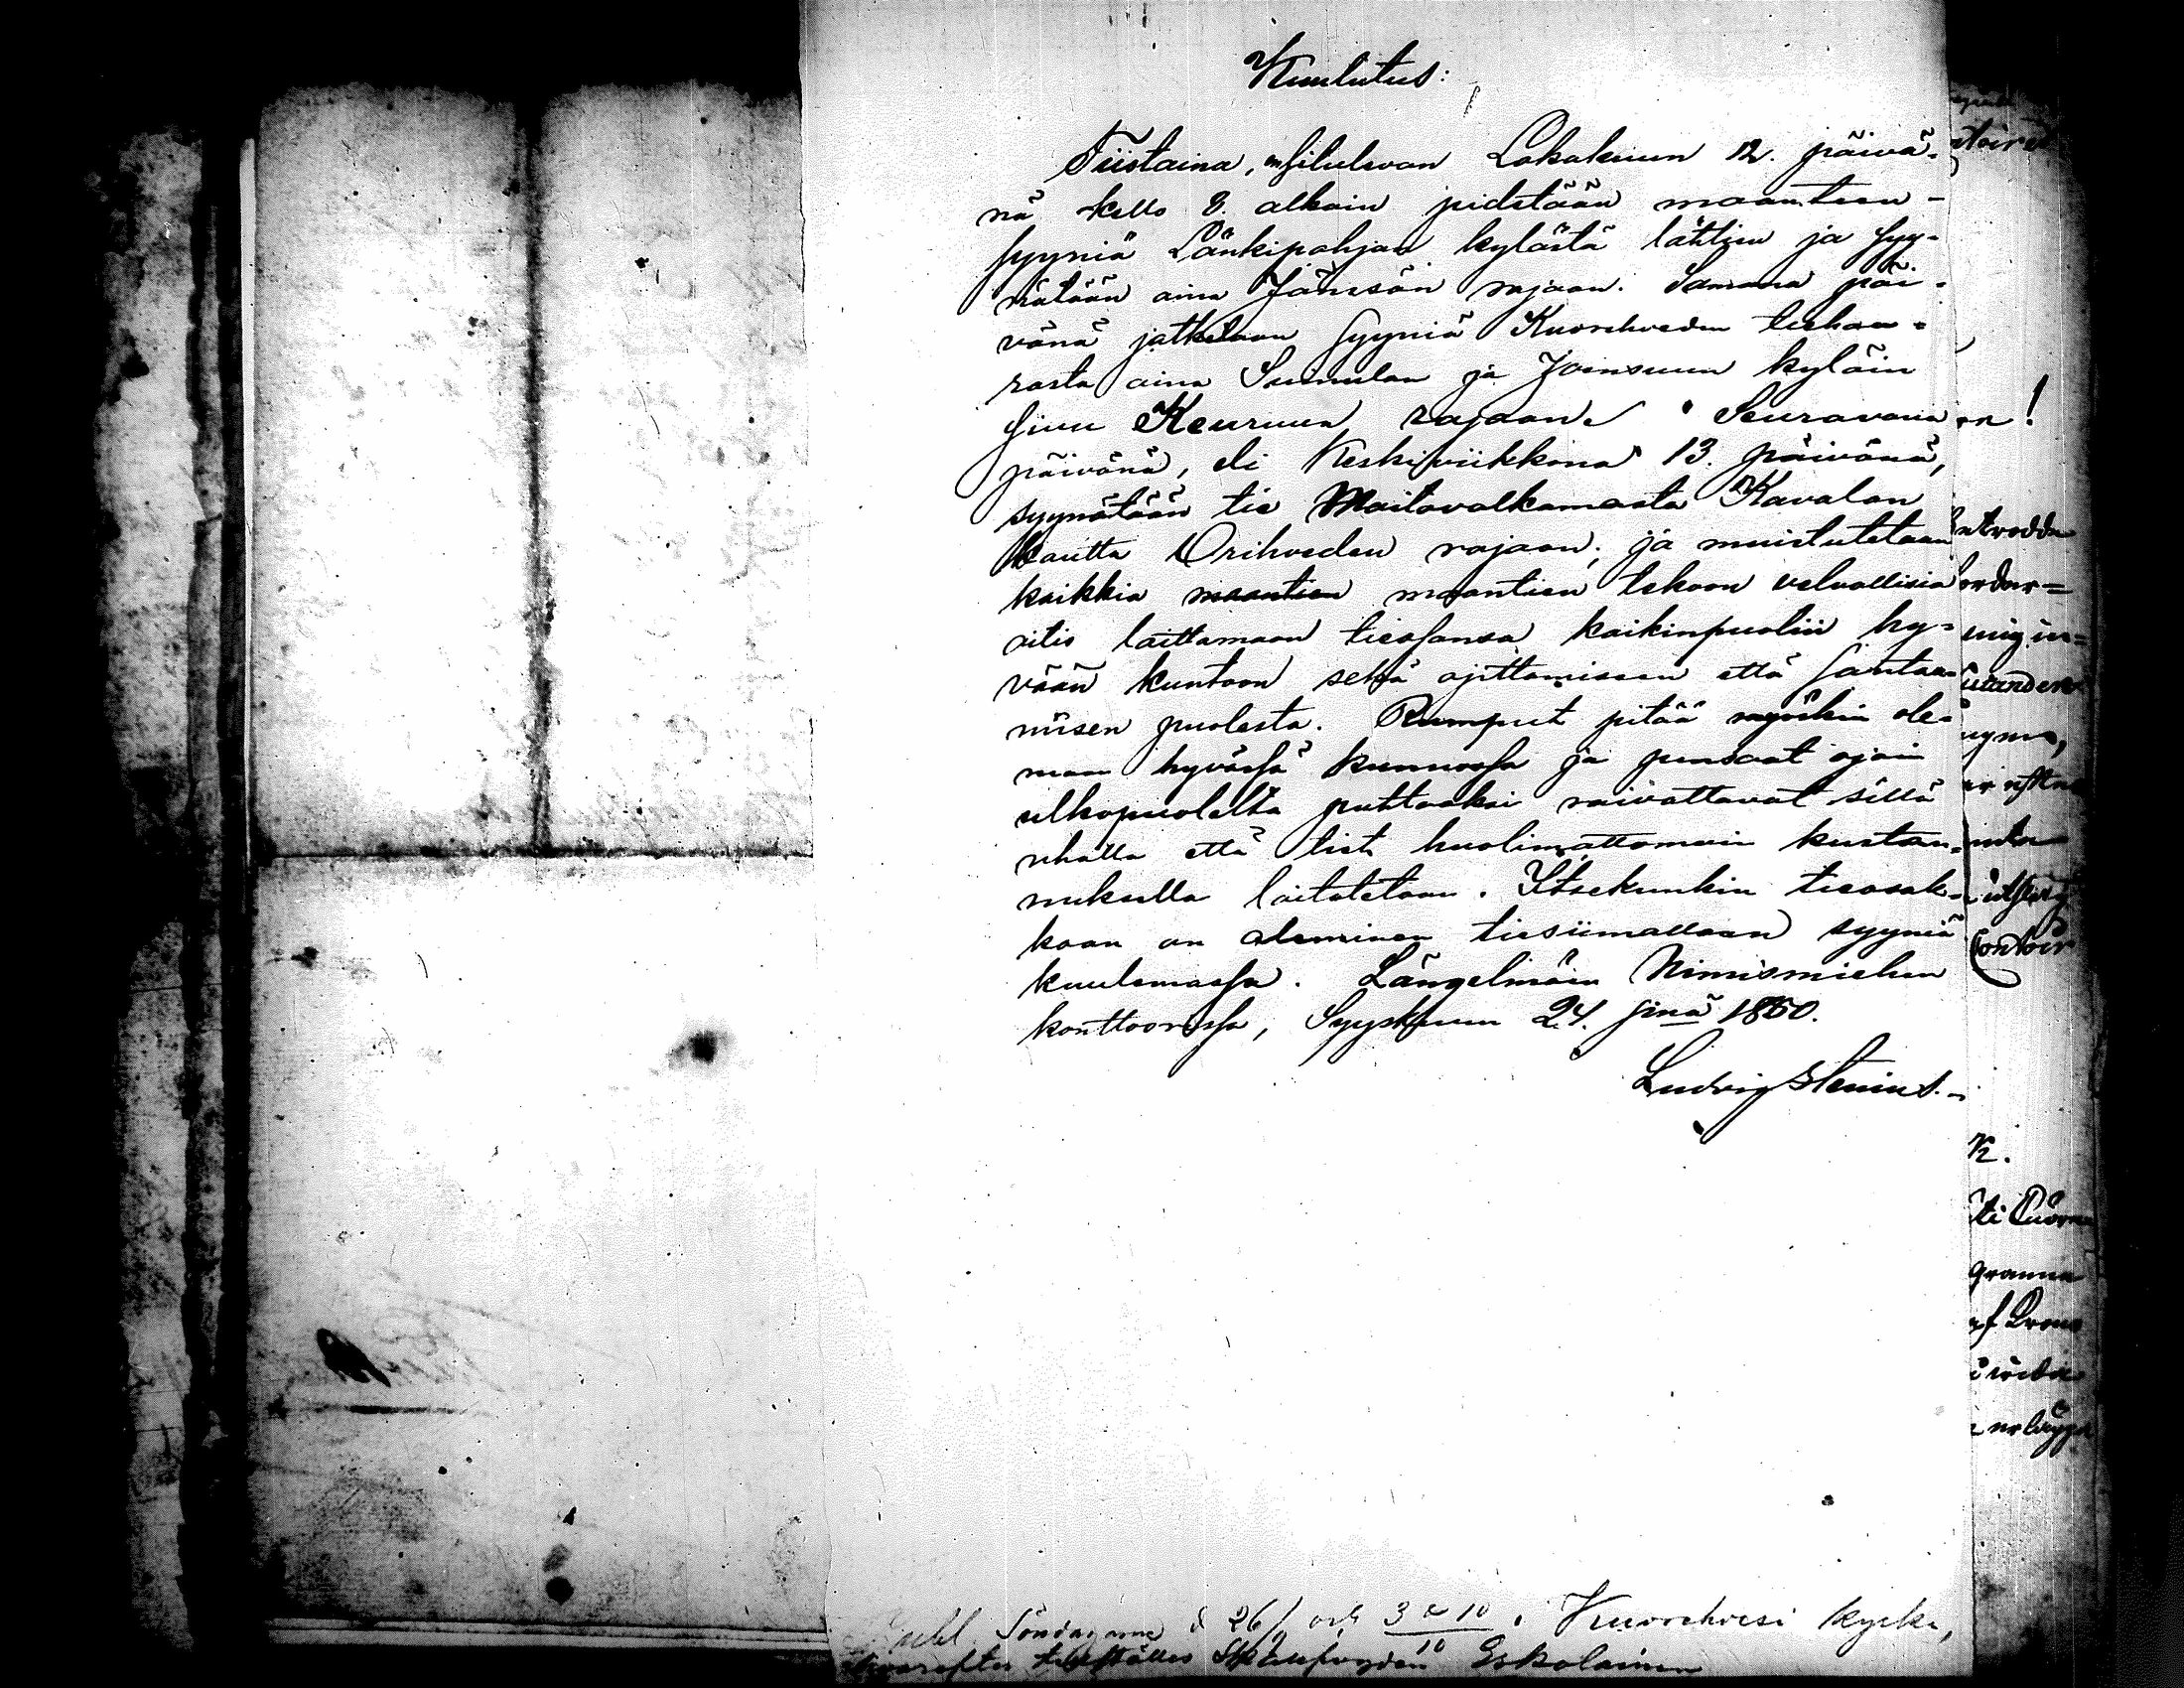 Kuulutus:
Tiistaina, ensitulevan Lokakuun 12. päivä-
nä kello 8. alkain pidetään maanteen-
syyniä Länkipohjan kylästä lähtien ja syy-
nätään aina Jämsän rajaan. Samana päi-
vänä jatketaan syyniä Kuoreveden tiehaa-
rasta aina Suinulan ja Joensuun kyläin
sivu Keuruun rajaan. Seuraavana
päivänä, eli Keskiviikkona 13. päivänä,
syynätään tie Maitovalkamasta Kavalan
kautta Oriheveden rajaan; ja muistutetaan
kaikkia maantien maantien tekoon velvollisia
oitis laittamaan tieosansa kaikinpuolin hy-
vään kuntoon sekä ojittamisen että santaa-
miisen puolesta. Rumput pitää myöskin ole-
man hyvässä kunnossa ja pensaat ojain
ulkopuolelta puhtaaksi raivattavat sillä
uhalla että tiet huolimattomain kustan-
nuksella laitatetaan. Itsekunkin tieosak-
kaan on oleminen tiesiimallaan syyniä
kuulemassa. Längelmäin Nimismiehen
konttoorissa, Syyskuun 24. pnä 1860.
Ludvig Stenius.
Söndagarne d 26/9 och 3 & 10/10 i Kuorehvesi kyrka,
hvarefter tillställes Skallfogden Eskolainen